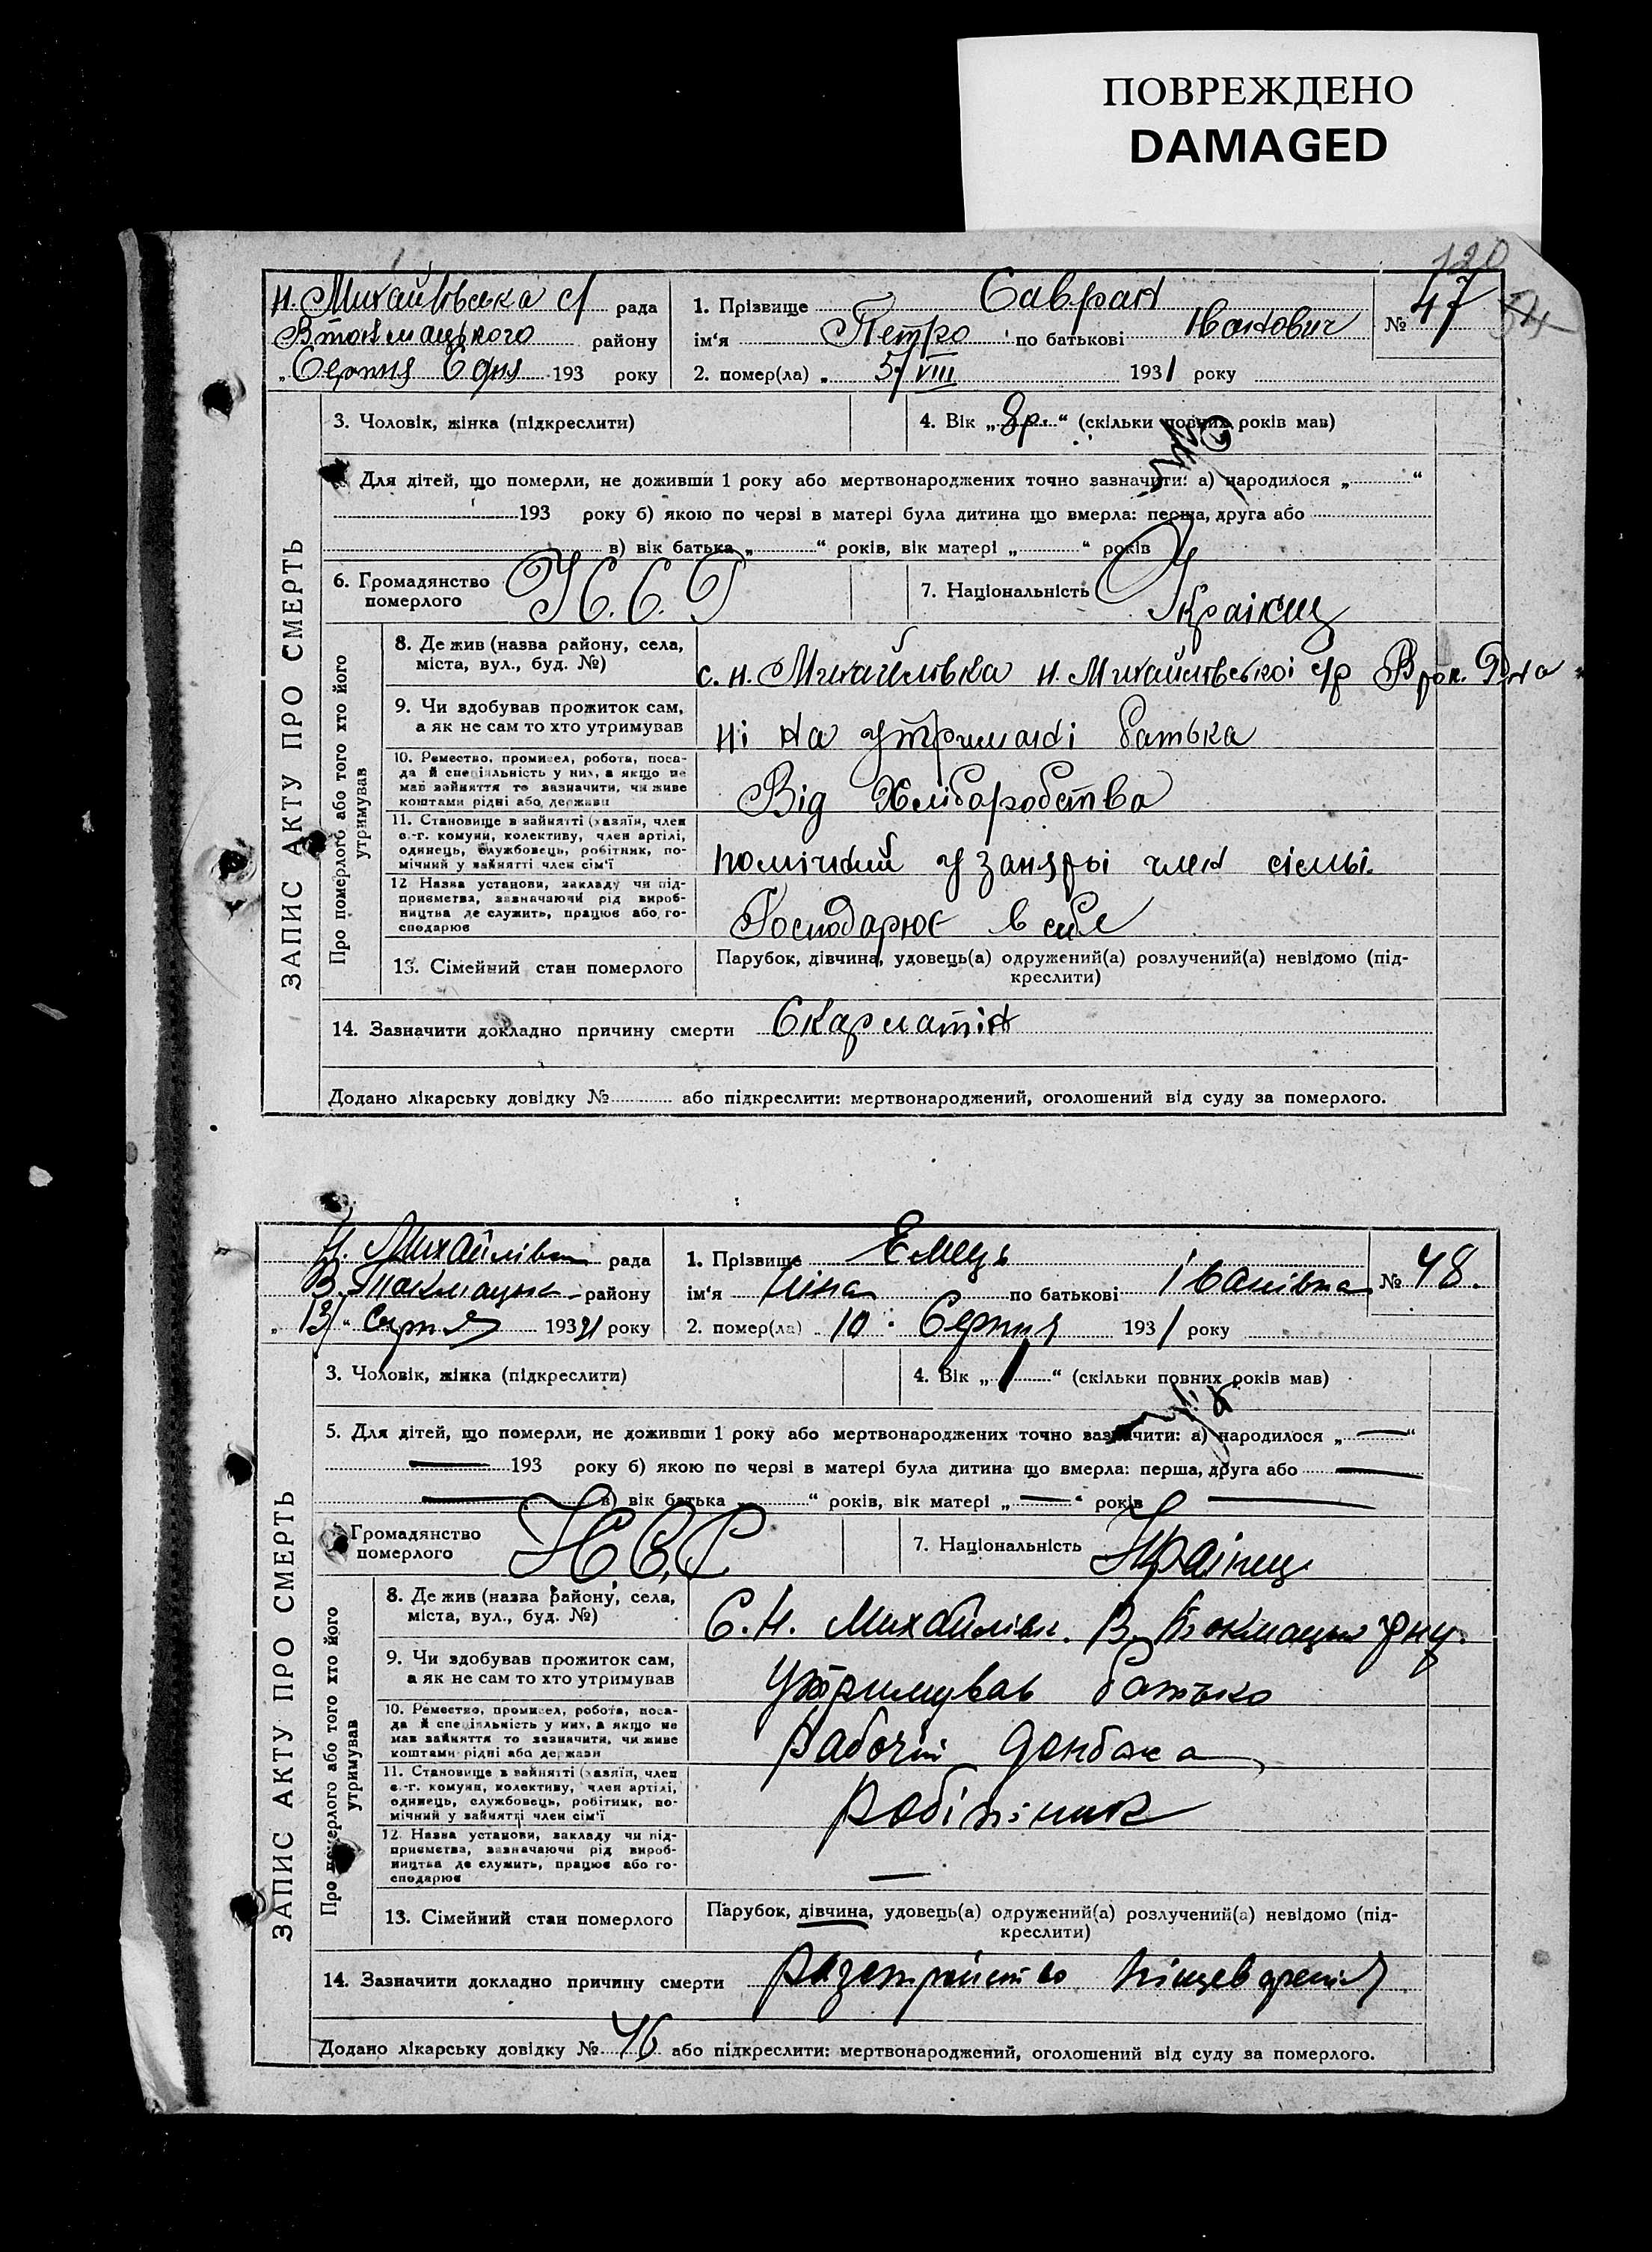 ПОВРЕЖДЕНО
DAMAGED
120
Н. Михайловська с/ рада
Втокмацького району
„Серпня 6 дня 193 року
1. Прізвище Савран
ім'я Петро по батькові Іванович
2. помер(ла) „ 5/VIII 1931 року
№ 47
3. Чоловік, жінка (підкреслити)
4. Вік „8р.“ (скільки повних років мав)
Для дітей, що померли, не доживши 1 року або мертвонароджених точно зазначити: а) народилося „ “
193 року б) якою по черзі в матері була дитина що вмерла: перша, друга або
в) вік батька „ “ років, вік матері „ “ років
6. Громадянство померлого
7. Національність Українц
ЗАПИС АКТУ ПРО СМЕРТЬ
Про померлого або того хто його утримував
8. Де жив (назва району, села,
міста, вул., буд. №)
с. Н. Михайловка Н. Михайловської с/р
9. Чи здобував прожиток сам,
а як не сам то хто утримував
ні на утримані батька
10. Ремество, промисел, робота, поса-
да й спеціяльність у них, а якщо не
мав зайняття то зазначити, чи живе
коштами рідні або держави
Від Хліборобства
11. Становище в зайнятті (хазяїн, член
с.-г. комуни, колективу, член артілі,
одинець, службовець, робітник, по-
мічний у зайнятті член сім'ї
помічний у занятті член сіємьі.
12 Назва установи, закладу чи під-
приємства, зазначаючи рід вироб-
ництва де служить, працює або го-
сподарює
Господарює в себе
13. Сімейний стан померлого
Парубок, дівчина, удовець(а) одружений(а) розлучений(а) невідомо (під-
креслити)
14. Зазначити докладно причину смерти Скарлатін
Додано лікарську довідку № або підкреслити: мертвонароджений, оголошений від суду за померлого.
Н. Михайлівка рада
В. Токмацьк району
„13/“ Серпня 1931 року
1. Прізвище Емець
ім'я Ніна по батькові Іванівна
2. помер(ла) „10 Серпня 1931 року
№ 48.
3. Чоловік, жінка (підкреслити)
4. Вік „1“ (скільки повних років мав)
5. Для дітей, що померли, не доживши 1 року або мертвонароджених точно зазначити: а) народилося „—“
— 193 року б) якою по черзі в матері була дитина що вмерла: перша, друга або —
— в) вік батька „ “ років, вік матері „—“ років —
Громадянство померлого
7. Національність Українц
ЗАПИС АКТУ ПРО СМЕРТЬ
Про померлого або того хто його утримував
8. Де жив (назва району, села,
міста, вул., буд. №)
С. Н. Михайлівк. В. Токмацьк р-ну.
9. Чи здобував прожиток сам,
а як не сам то хто утримував
Утримував батько
10. Ремество, промисел, робота, поса-
да й спеціяльність у них, а якщо не
мав зайняття то зазначити, чи живе
коштами рідні або держави
рабочій Донбаса
11. Становище в зайнятті (хазяїн, член
с.-г. комуни, колективу, член артілі,
одинець, службовець, робітник, по-
мічний у зайнятті член сім'ї
робітник
12. Назва установи, закладу чи під-
приємства, зазначаючи рід вироб-
ництва де служить, працює або го-
сподарює
—
13. Сімейний стан померлого
Парубок, дівчина, удовець(а) одружений(а) розлучений(а) невідомо (під-
креслити)
14. Зазначити докладно причину смерти разстройство
Додано лікарську довідку № 46 або підкреслити: мертвонароджений, оголошений від суду за померлого.